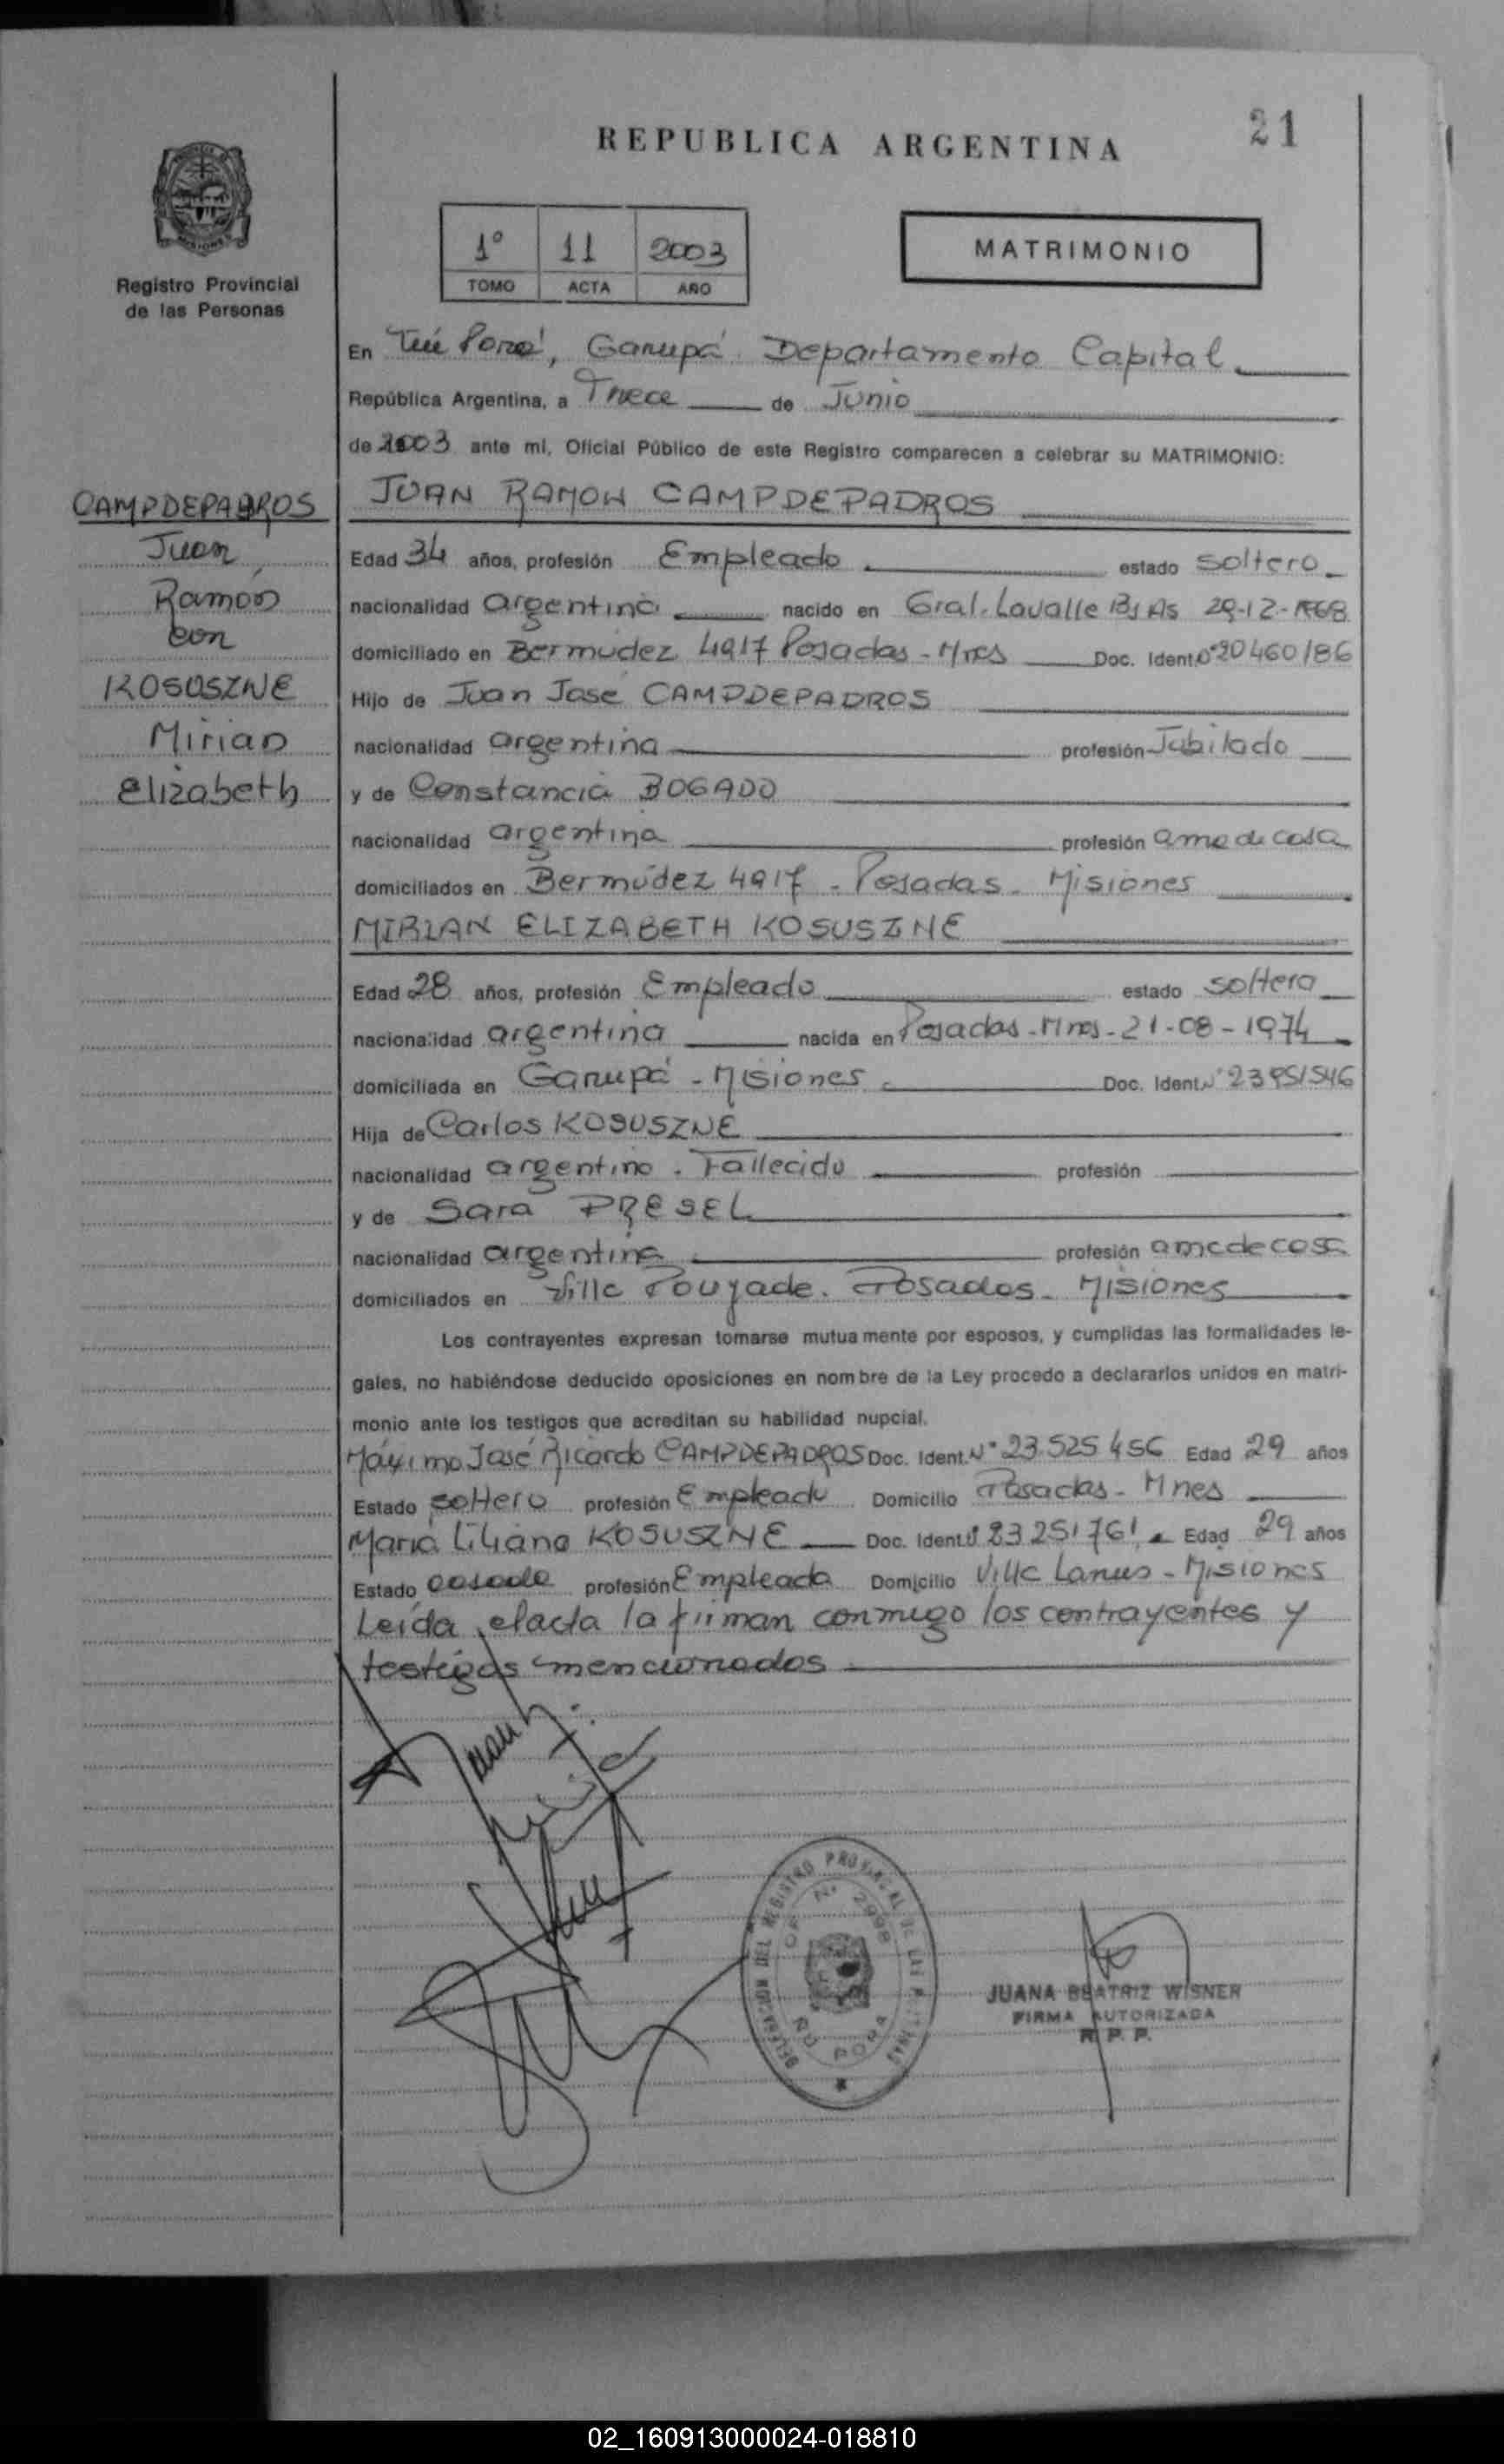 REPUBLICA ARGENTINA
21
Registro Provincial
de las Personas
1º 11 2003
TOMO ACTA AÑO
MATRIMONIO
En Garupá Departamento Capital
República Argentina, a Trece de Junio
de 2003 ante mí, Oficial Público de este Registro comparecen a celebrar su MATRIMONIO:
CAMPDEPADROS
Juan
Ramón
con
KOSUSZNE
Mirian
Elizabeth
JUAN RAMON CAMPDEPADROS
Edad 34 años, profesión Empleado estado soltero
nacionalidad argentina nacido en Gral. Lavalle Bs As 29-12-1968
domiciliado en Bermudez 4917 Posadas - Mnes Doc. Ident. Nº 20460186
Hijo de Juan José CAMPDEPADROS
nacionalidad argentina profesión Jubilado
y de Constancia BOGADO
nacionalidad argentina profesión ama de casa
domiciliados en Bermúdez 4917 - Posadas - Misiones
MIRIAN ELIZABETH KOSUSZNE
Edad 28 años, profesión Empleado estado soltera
nacionalidad argentina nacida en Posadas - Mnes - 21-08-1974
domiciliada en Garupá - Misiones Doc. Ident. Nº 23951546
Hija de Carlos KOSUSZNE
nacionalidad argentino. Fallecido profesión
y de Sara PRESEL
nacionalidad argentina profesión ama de casa
domiciliados en Villa Poujade. Posadas - Misiones
Los contrayentes expresan tomarse mutuamente por esposos, y cumplidas las formalidades le-
gales, no habiéndose deducido oposiciones en nombre de la Ley procedo a declararlos unidos en matri-
monio ante los testigos que acreditan su habilidad nupcial.
Máximo José Ricardo CAMPDEPADROS Doc. Ident. Nº 23.525456 Edad 29 años
Estado soltero profesión Empleado Domicilio Posadas - Mnes
María Liliana KOSUSZNE Doc. Ident. Nº 23251761 Edad 29 años
Estado casada profesión Empleada Domicilio Villa Lanus - Misiones
Leída el acta la firman conmigo los contrayentes y
testigos mencionados
DELEGACION DEL REGISTRO PROVINCIAL DE LAS PERSONAS
JUANA BEATRIZ WISNER
FIRMA AUTORIZADA
R. P. P.
02_160913000024-018810